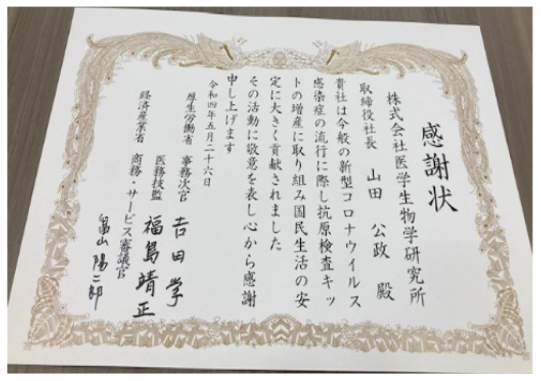 感謝状
株式会社医学生物学研究所
取締役社長 山田 公政 殿
貴社は今般の新型コロナウイルス
感染症の流行に際し抗原検査キッ
トの増産に取り組み国民生活の安
定に大きく貢献されました
その活動に敬意を表し心から感謝
申し上げます
令和四年五月二十六日
厚生労働省 事務次官 吉田 学
医務技監 福島靖正
経済産業省 商務・サービス審議官
畠山 陽二郎